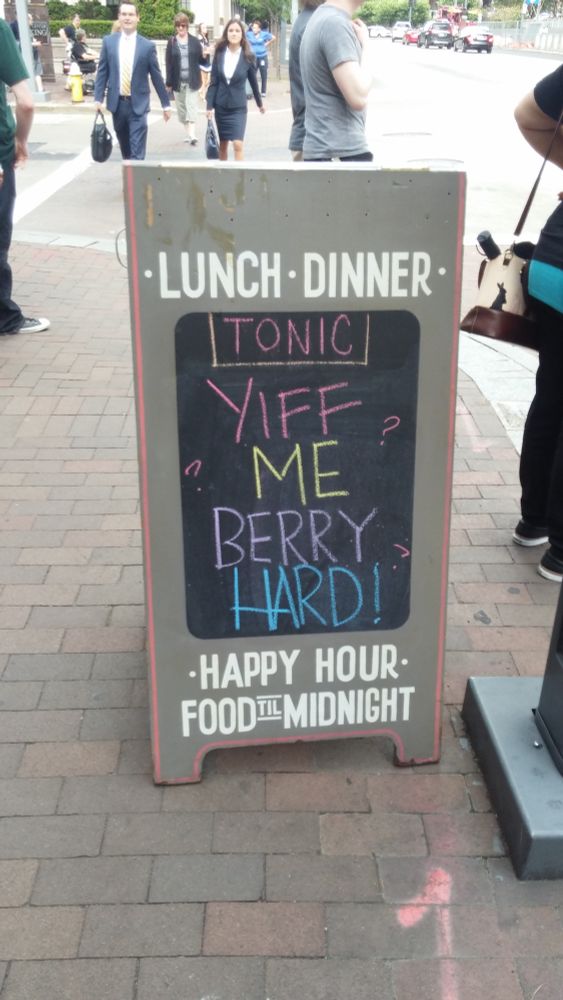 ·LUNCH·DINNER·
TONIC
YIFF ?
ME
? BERRY
HARD! ?
·HAPPY HOUR·
FOOD TIL MIDNIGHT